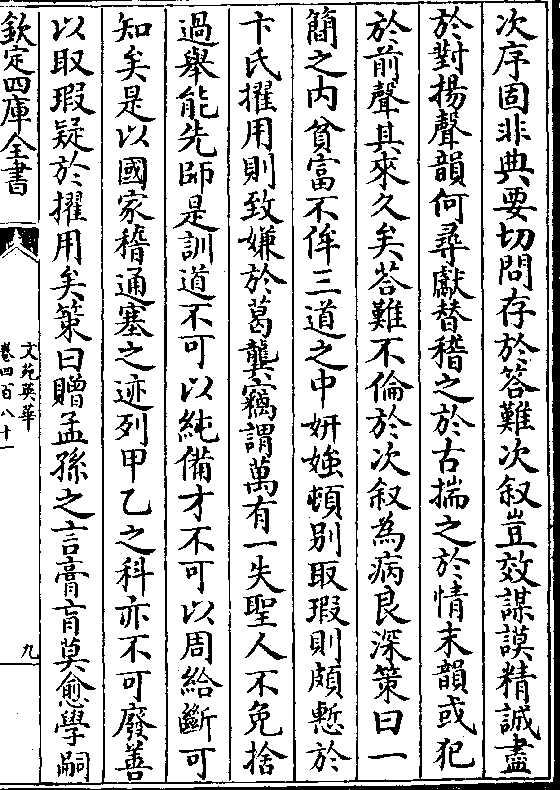 次序固非典要切問存於答難次叙豈效謀謨精誠盡
於對揚聲韻何尋獻替稽之於古揣之於情末韻或犯
於前聲其來久矣答難不倫於次叙為病良深策曰一
簡之内貧富不侔三道之中妍媸頓别取瑕則頗慙於
卞氏擢用則致嫌於葛龔竊謂萬有一失聖人不免捨
過舉能先師是訓道不可以純備才不可以周給斷可
知矣是以國家稽通塞之迹列甲乙之科亦不可廢善
以取瑕疑於擢用矣策曰贈孟孫之言膏肓莫愈學嗣
欽定四庫全書
文苑英華
卷四百八十一
九